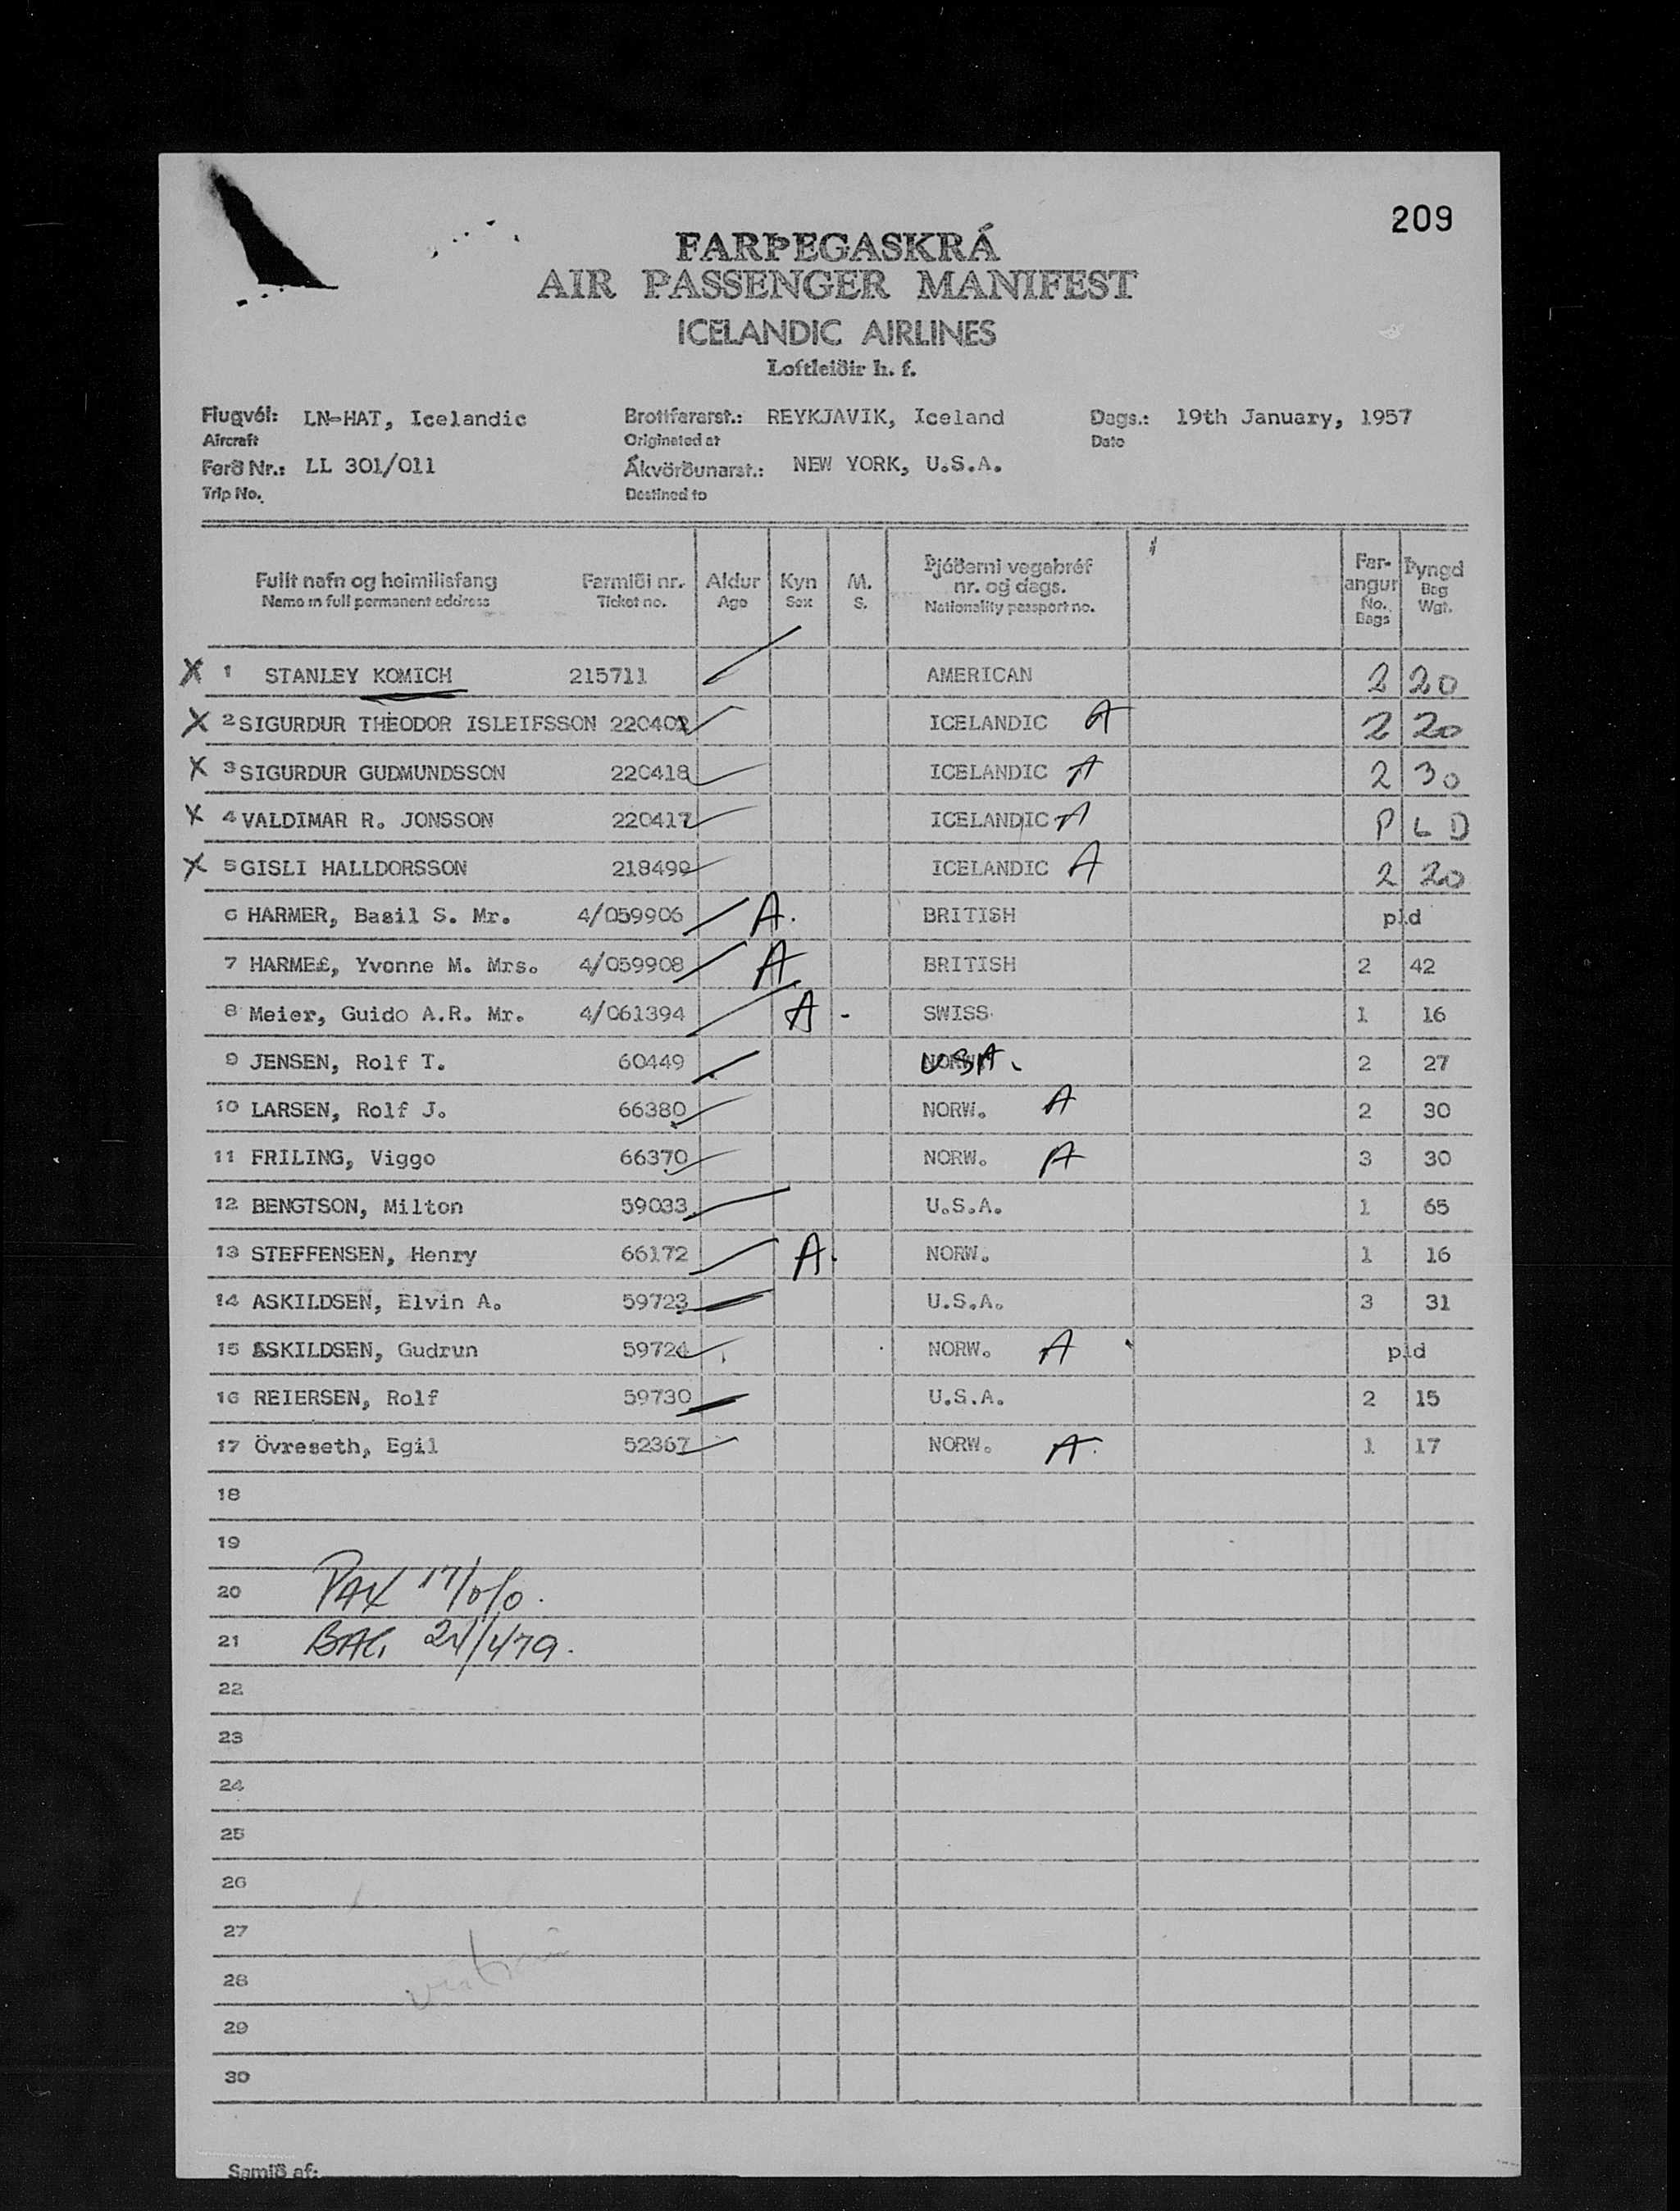 209
FARÞEGASKRÁ
AIR PASSENGER MANIFEST
ICELANDIC AIRLINES
Loftleiðir h. f.
Flugvél: LN-HAT, Icelandic Brottfararst.: REYKJAVIK, Iceland Dags.: 19th January, 1957
Aircraft Originated at Date
Ferð Nr.: LL 301/011 Ákvörðunarst.: NEW YORK, U.S.A.
Trip No. Destined to
Fullt nafn og heimilisfang Farmiði nr. Aldur Kyn M. Þjóðerni vegabréf nr. og dags. Far-angur Þyngd
Name in full permanent address Ticket no. Age Sex S. Nationality passport no. No. Bags Bag Wgt.
X 1 STANLEY KOMICH 215711 AMERICAN 2 20
X 2 SIGURDUR THEODOR ISLEIFSSON 220402 ICELANDIC A 2 20
X 3 SIGURDUR GUDMUNDSSON 220418 ICELANDIC A 2 30
X 4 VALDIMAR R. JONSSON 220417 ICELANDIC A P L D
X 5 GISLI HALLDORSSON 218499 ICELANDIC A 2 20
6 HARMER, Basil S. Mr. 4/059906 A. BRITISH pld
7 HARME£, Yvonne M. Mrs. 4/059908 A BRITISH 2 42
8 Meier, Guido A.R. Mr. 4/061394 A - SWISS 1 16
9 JENSEN, Rolf T. 60449 USA. 2 27
10 LARSEN, Rolf J. 66380 NORW. A 2 30
11 FRILING, Viggo 66370 NORW. A 3 30
12 BENGTSON, Milton 59033 U.S.A. 1 65
13 STEFFENSEN, Henry 66172 A. NORW. 1 16
14 ASKILDSEN, Elvin A. 59723 U.S.A. 3 31
15 ASKILDSEN, Gudrun 59724 NORW. A pld
16 REIERSEN, Rolf 59730 U.S.A. 2 15
17 Övreseth, Egil 52367 NORW. A. 1 17
18
19
20 PAX 17/0/0.
21 BAG 24/479.
22
23
24
25
26
27
28
29
30
Samið af: